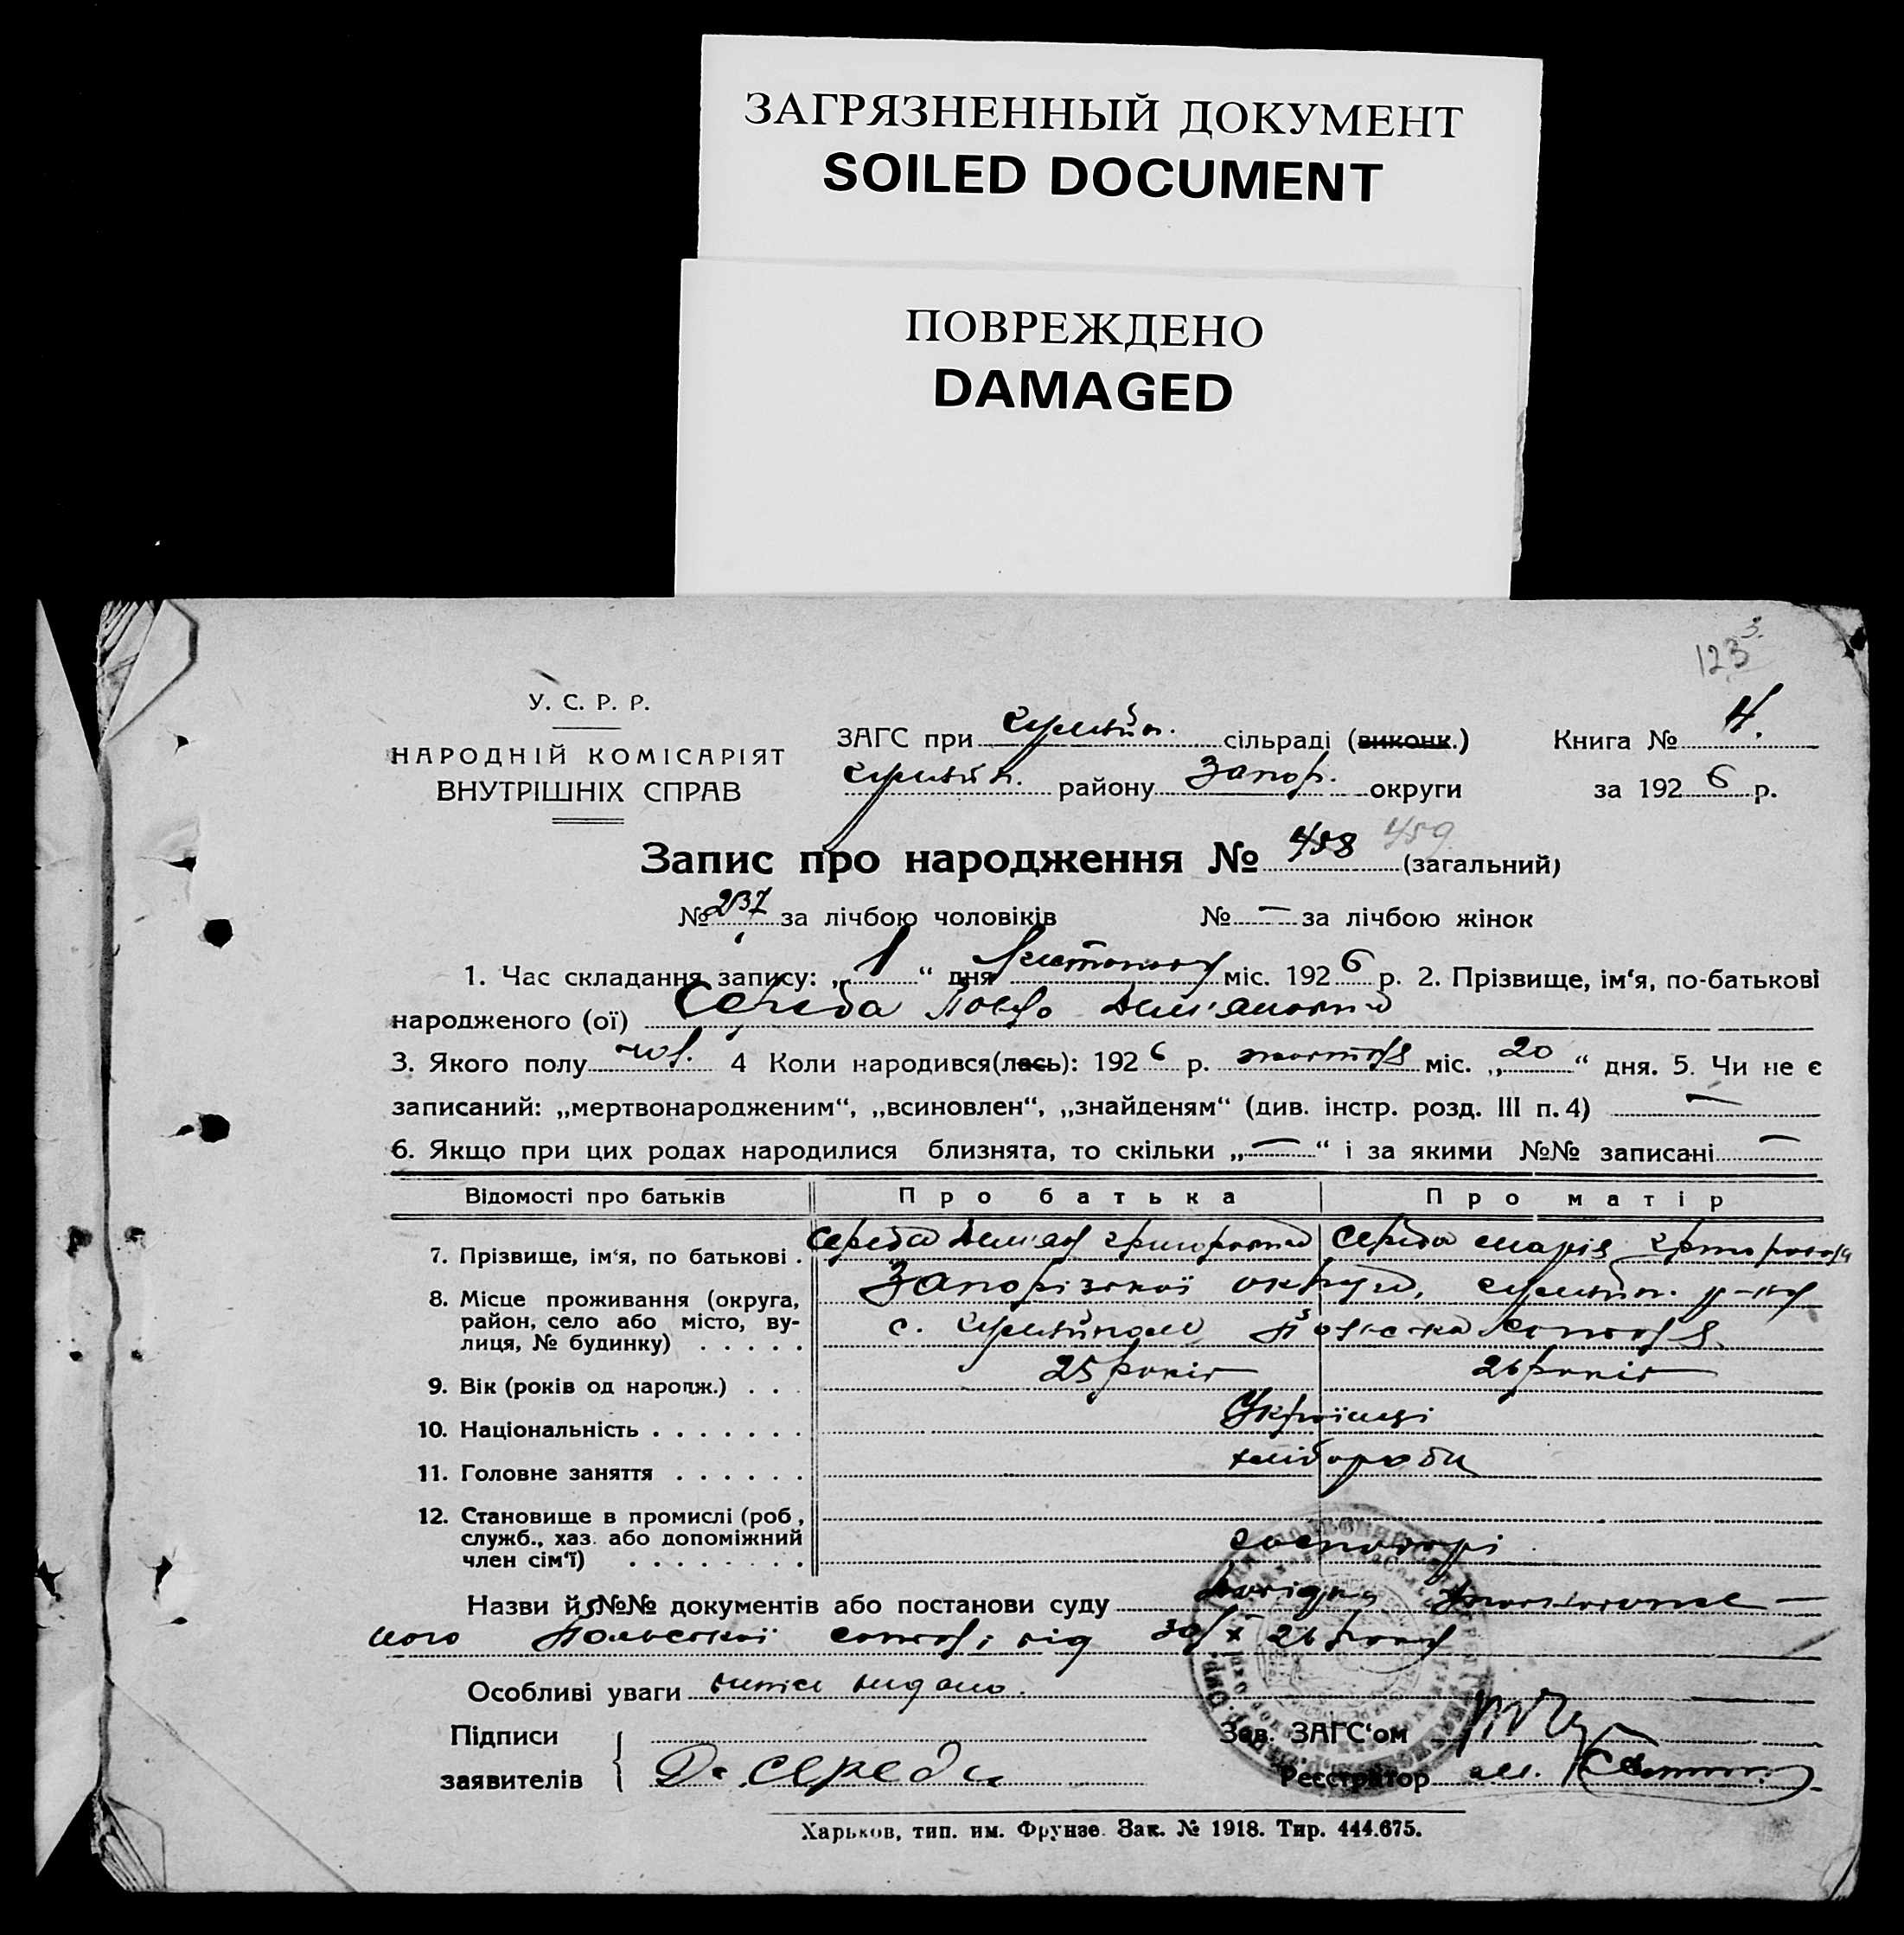 ЗАГРЯЗНЕННЫЙ ДОКУМЕНТ
SOILED DOCUMENT
ПОВРЕЖДЕНО
DAMAGED
123
3.
У. С. Р. Р.
НАРОДНІЙ КОМІСАРІЯТ
ВНУТРІШНІХ СПРАВ
ЗАГС при сільраді (виконк.)
району Запор. округи
Книга № 4.
за 1926 р.
Запис про народження № 458 459 (загальний)
№ 237 за лічбою чоловіків № — за лічбою жінок
1. Час складання запису: „1“ дня Листопада міс. 1926 р. 2. Прізвище, ім‘я, по-батькові
народженого (ої) Середа Павло Дем'янович
3. Якого полу чол. 4 Коли народився(лась): 1926 р. жовтня міс. „20“ дня. 5. Чи не є
записаний: „мертвонародженим“, „всиновлен“, „знайденям“ (див. інстр. розд. III п. 4) —
6. Якщо при цих родах народилися близнята, то скільки „—“ і за якими №№ записані —
Відомості про батьків Про батька Про матір
7. Прізвище, ім‘я, по батькові . Середа Дем'ян Григорович Середа Марія
8. Місце проживання (округа, Запорізької округи, р-ну
район, село або місто, ву-
лиця, № будинку) . . . . . с. Польська сотня
9. Вік (років од народж.) . . . 25 років 26 років
10. Національність . . . . . . . Українці
11. Головне заняття . . . . . . хлібороби
12. Становище в промислі (роб,
служб., хаз. або допоміжний
член сім‘ї) . . . . . . . . господарі
Назви й №№ документів або постанови суду довідка
Польської сотні від 30/X 26 року
Особливі уваги витяг видано.
Підписи
заявителів Д. Середа
Зав. ЗАГС‘ом
Реєстратор
Харьков, тип. им. Фрунзе. Зак. № 1918. Тир. 444.675.